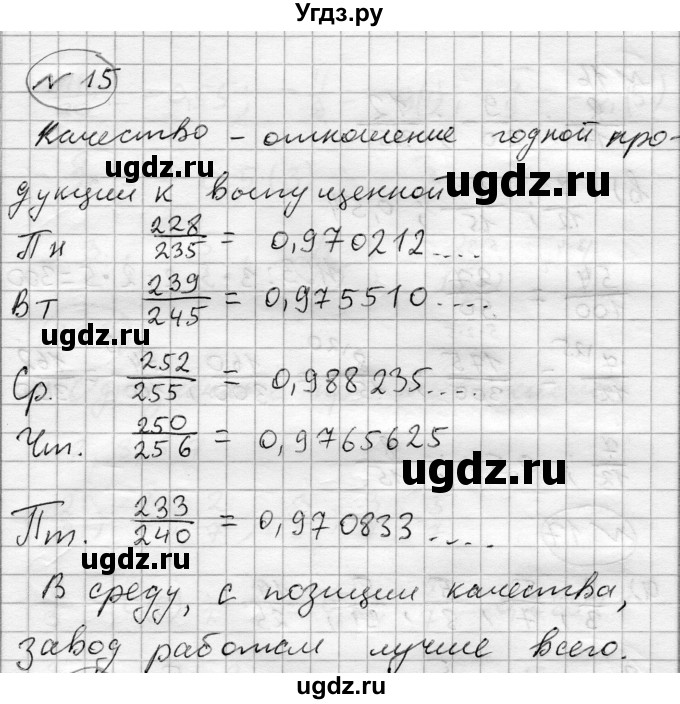 Угдз.ру
№ 15
Качество – отношение годной про-
ugdz.ru ugdz.ru
дукции к выпущенной
Пн 228/235 = 0,970212....
Вт 239/245 = 0,975510....
ugdz.ru
Ср. 252/255 = 0,988235....
Чт. 250/256 = 0,9765625
ugdz.ru
Пт. 233/240 = 0,970833....
ugdz.ru
В среду, с позиции качества,
завод работал лучше всего.
ugdz.ru
ugdz.ru